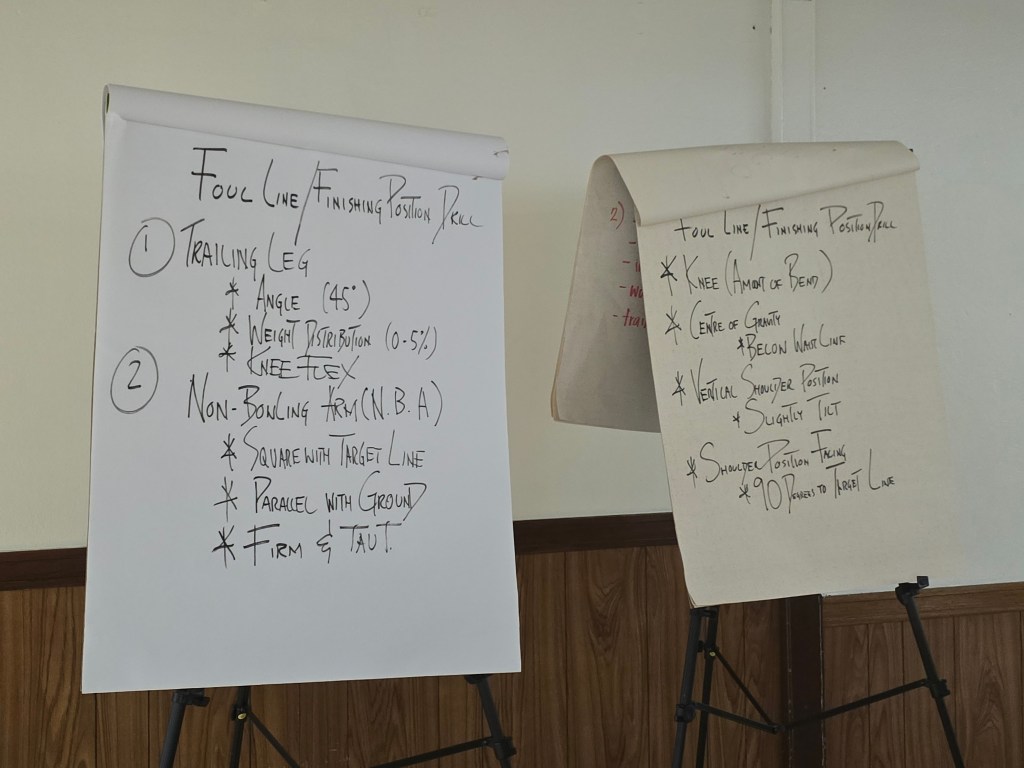 FOUL LINE/FINISHING POSITION DRILL
① TRAILING LEG
* ANGLE (45°)
* WEIGHT DISTRIBUTION (0-5%)
* KNEE FLEX
② NON-BOWLING ARM (N.B.A)
* SQUARE WITH TARGET LINE
* PARALLEL WITH GROUND
* FIRM & TAUT.
2)
FOUL LINE/FINISHING POSITION DRILL
* KNEE (AMONT OF BEND)
* CENTRE OF GRAVITY
* BELOW WAIST LINE
* VERTICAL SHOULDER POSITION
* SLIGHTLY TILT
* SHOULDER POSITION FACING
* 90 DEGREES TO TARGET LINE